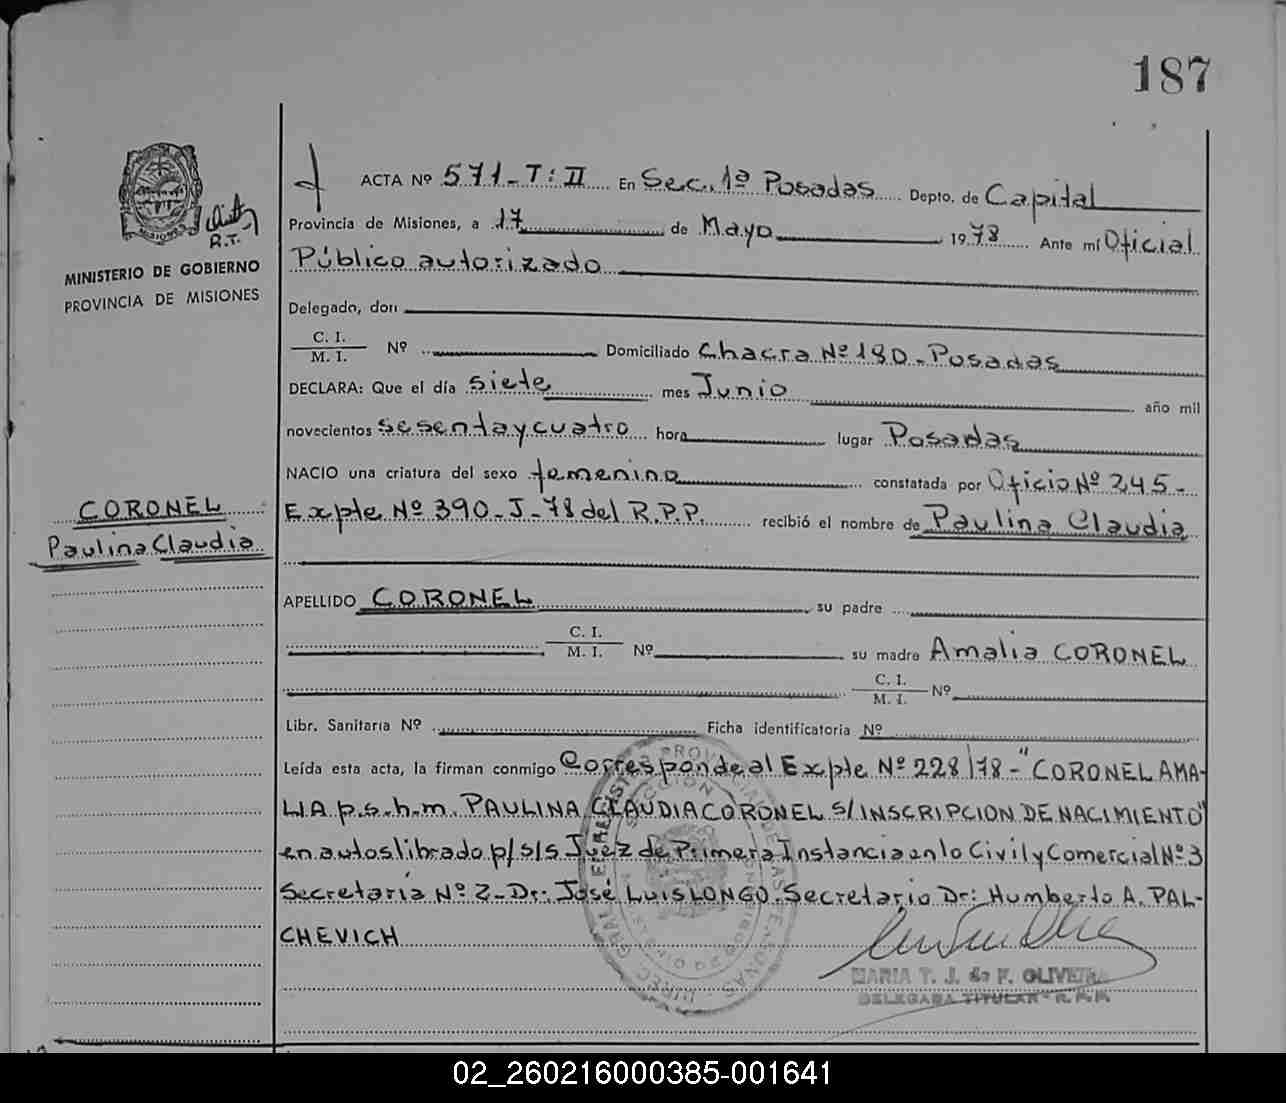 187
ACTA Nº 571-T: II En Sec. 1ª Posadas Depto. de Capital
Provincia de Misiones, a 17 de Mayo 1978 Ante mí Oficial
Público autorizado
R.T.
MINISTERIO DE GOBIERNO
PROVINCIA DE MISIONES
Delegado, don
C. I.
M. I. Nº Domiciliado Chacra Nº 180-Posadas
DECLARA: Que el día siete mes Junio año mil
novecientos sesenta y cuatro hora lugar Posadas
NACIO una criatura del sexo femenino constatada por Oficio Nº 245-
Exple Nº 390-J-78 del R.P.P. recibió el nombre de Paulina Claudia
CORONEL
Paulina Claudia
APELLIDO CORONEL su padre
C. I.
M. I. Nº su madre Amalia CORONEL
C. I.
M. I. Nº
Libr. Sanitaria Nº Ficha identificatoria Nº
Leída esta acta, la firman conmigo Corresponde al Exple Nº 228/78-"CORONEL AMA-
LIA p.s.h.m. PAULINA CLAUDIA CORONEL S/INSCRIPCION DE NACIMIENTO"
en autos librado p/s/s Juez de Primera Instancia en lo Civil y Comercial Nº 3
Secretaría Nº 2-Dr: José Luis LONGO. Secretario Dr: Humberto A. PAL-
CHEVICH
MARIA T. J. de F. OLIVEIRA
DELEGADA TITULAR - R. P. P.
02_260216000385-001641